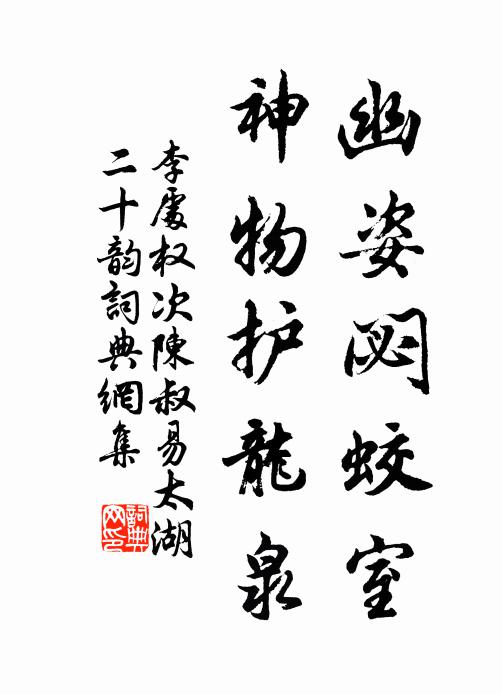 幽姿閟蛟室
神物护龍泉
李處权次陳叔易太湖
二十韵詞典網集